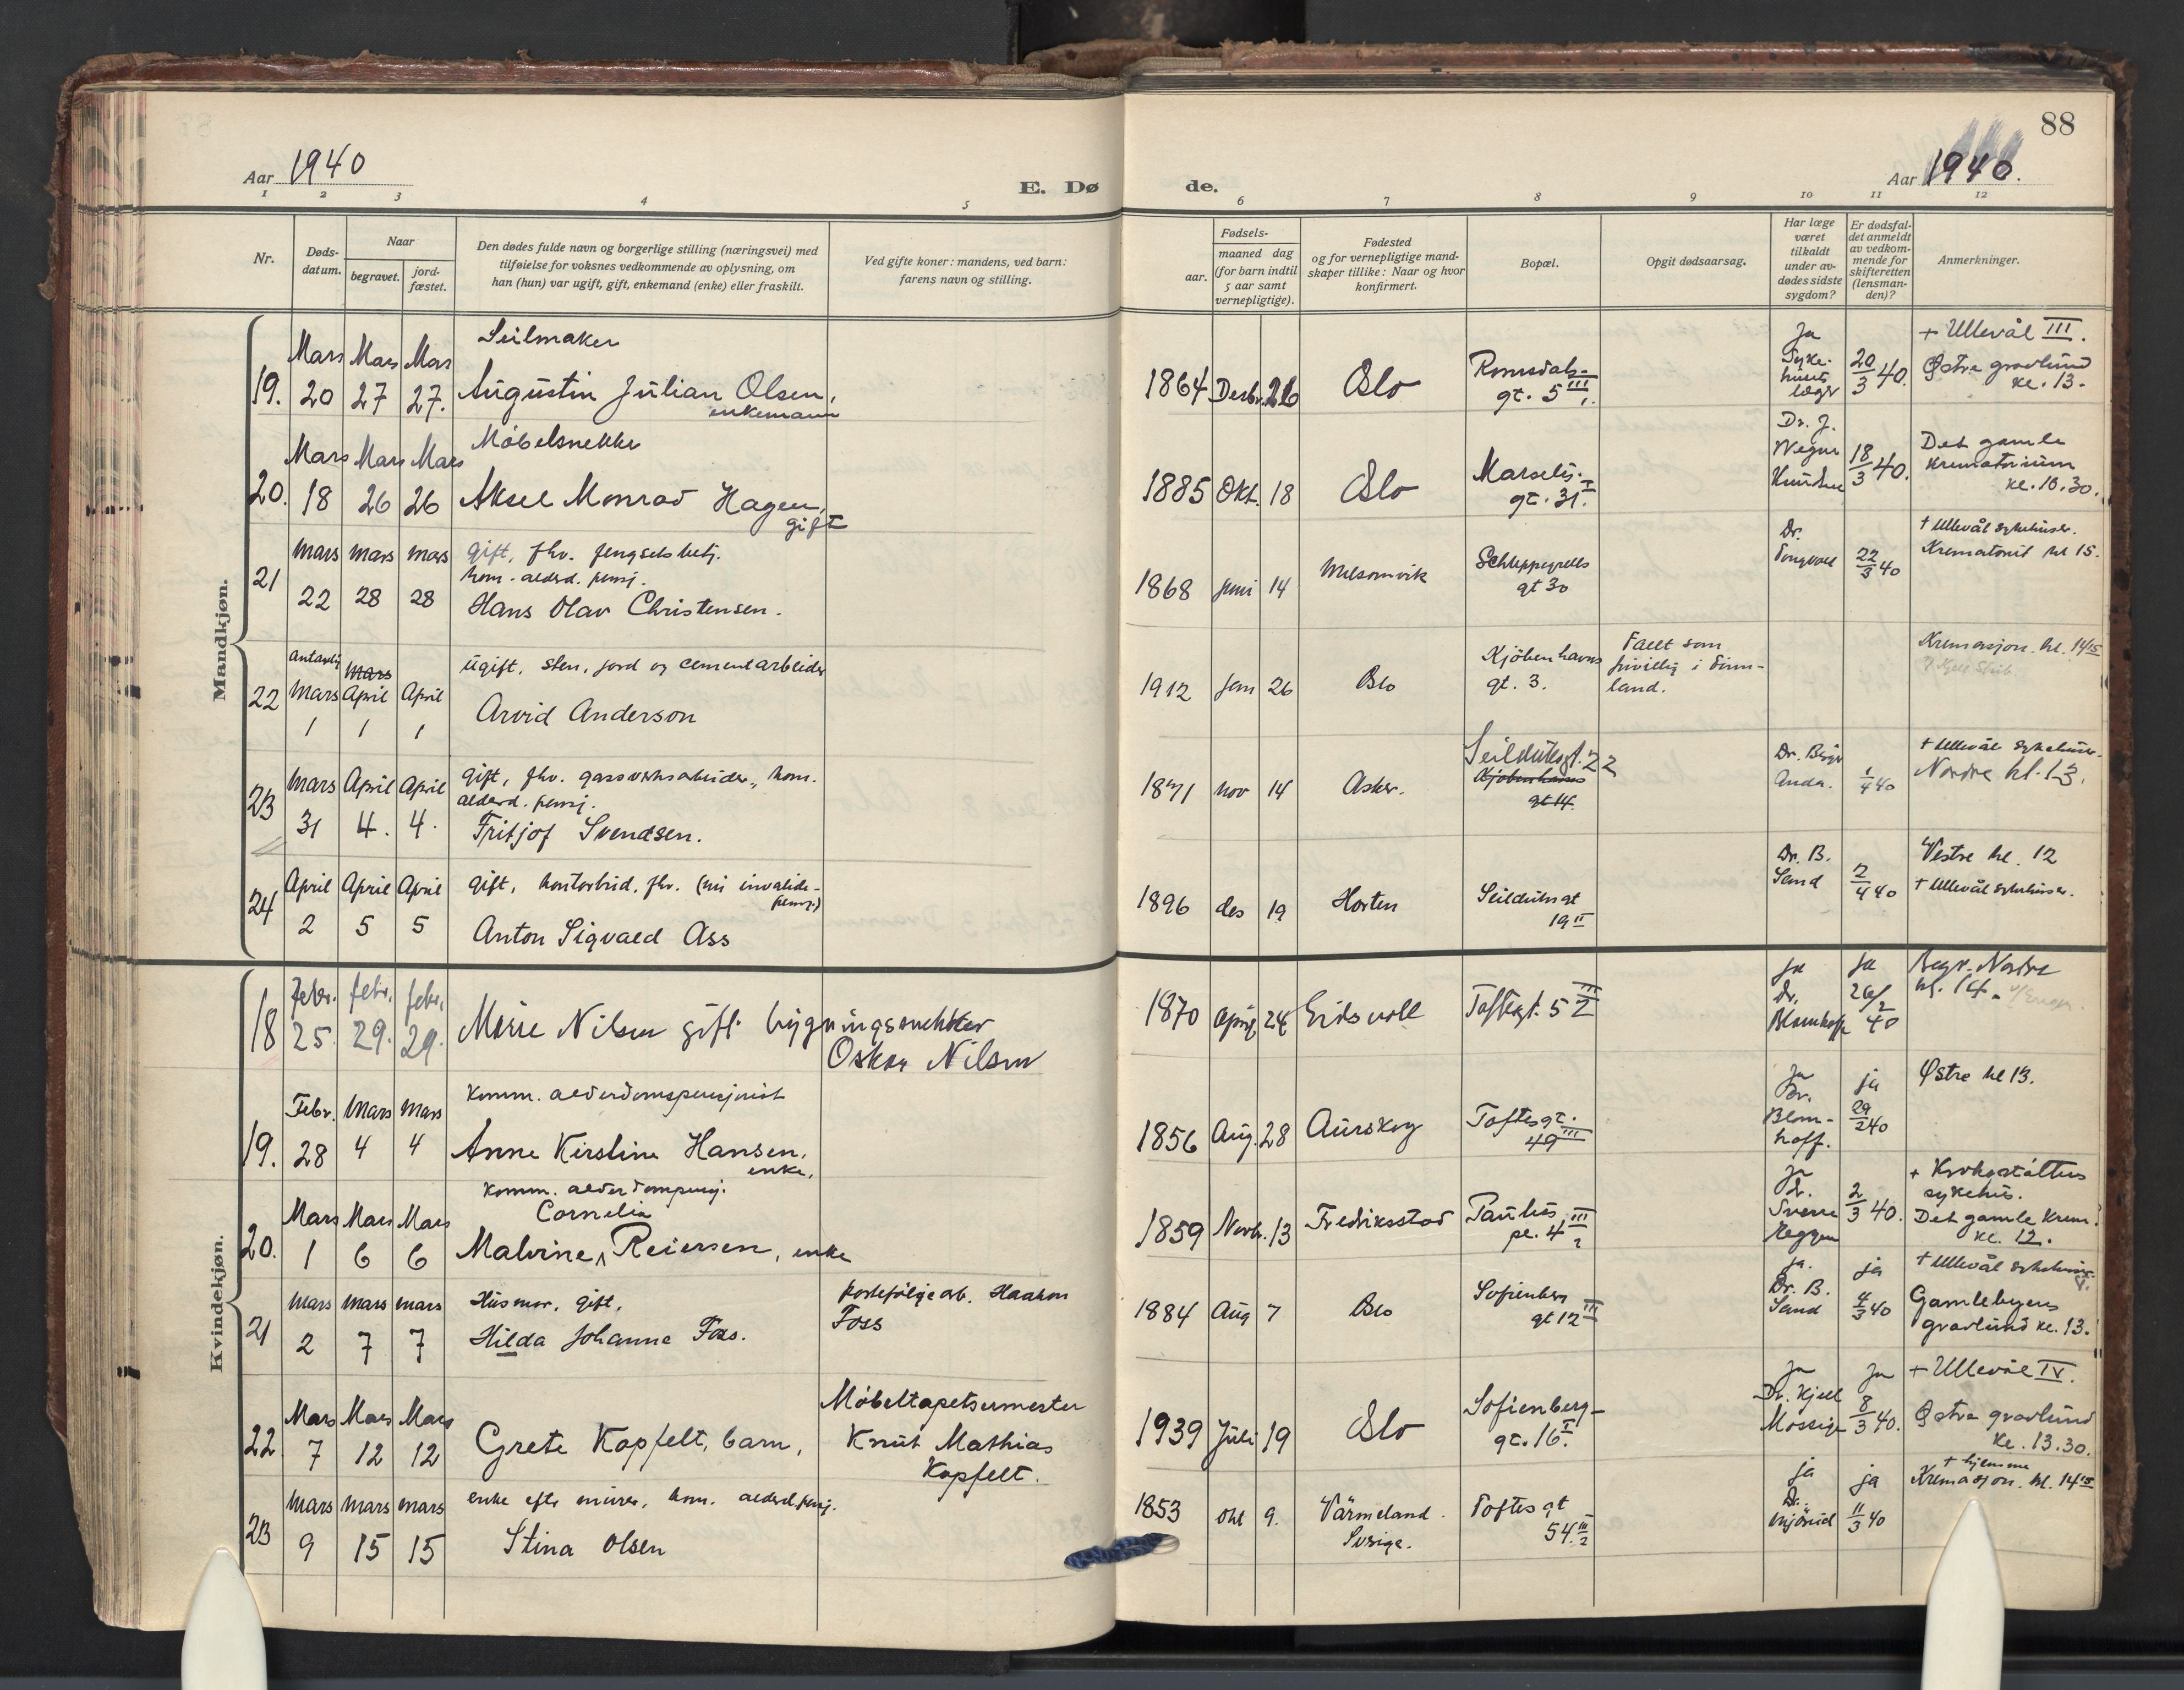 88
Aar 1940
E. Dø
de.
Aar 1940.
1 2 3 4 5
6 7 8 9 10 11 12
Nr.
Døds-
datum.
Naar
begravet.
jord-
fæstet.
Den dødes fulde navn og borgerlige stilling (næringsvei) med
tilføielse for voksnes vedkommende av oplysning, om
han (hun) var ugift, gift, enkemand (enke) eller fraskilt.
Ved gifte koner: mandens, ved barn:
farens navn og stilling.
Fødsels-
aar.
maaned dag
(for barn indtil
5 aar samt
vernepligtige).
Fødested
og for vernepligtige mand-
skaper tillike: Naar og hvor
konfirmert.
Bopæl.
Opgit dødsaarsag.
Har læge
været
tilkaldt
under av-
dødes sidste
sygdom?
Er dødsfal-
det anmeldt
av vedkom-
mende for
skifteretten
(lensman-
den)?
Anmerkninger.
Mandkjøn.
Seilmaker
19. Mars 20 Mars 27 Mars 27. Augustin Julian Olsen,
enkemann
1864 Desbr. 26 Oslo
Romsdals-
gt. 5 III
Ja
Syke-
husets
læger
20/3 40.
+ Ullevål III.
Østre gravlund
kl. 13.
Møbelsnekker
20. Mars 18 Mars 26 Mars 26 Aksel Monrad Hagen,
gift
1885 Okt. 18 Oslo
Marselis-
gt. 31 I.
Dr. J.
Weger
Knudsen
18/3 40.
Det gamle
krematorium
kl. 10.30.
21 mars 22 mars 28 mars 28 gift, fhv. fengselsbetj.
kom. alderd. pensj.
Hans Olav Christensen.
1868 juni 14 Melsomvik
Schleppegrells
gt 30
Dr.
22/3 40
+ Ullevål sykehuser.
Krematoriet kl 15.
22 antavlig Mars 1 Mars April 1 April 1 ugift, sten, jord og cementarbeider
Arvid Anderson
1912 jan 26 Oslo
Kjöbenhavns
gt. 3.
Fallt som
frivillig i Finn-
land.
Kremasjon. kl. 14 15
23 Mars 31 April 4. April 4. gift, fhv. gassverksarbeider, kom.
alderd. pensj.
Fritjof Svendsen.
1871 nov 14 Asker.
Seilduksgt. 22
Kjöbenhavns
gt 14.
Dr. Birger
Anda.
1/4 40
+ Ullevål sykehuser.
Nordre kl. 13.
24 April 2 April 5 April 5 gift, kontorbud, fhv. (nu invalide-
pensj.)
Anton Sigvald Ass
1896 des 19 Horten
Seilduks gt
19 II
Dr. B.
Sand
2/4 40
Vestre kl. 12
+ Ullevål sykehuser.
Kvindekjøn.
18 Febr. 25. febr. 29. febr. 29. Marie Nilsen gift bygningssnekker
Oskar Nilsen
1870 April 24 Eidsvoll
Toftesgt. 5 III/2
ja
Dr.
Blomhoff
Ja
26/2
40
Begr. Nordre
kl. 14.
Komm. alderdomspensjonist
19. Febr. 28 Mars 4 Mars 4 Anne Kirstine Hansen,
enke,
1856 Aug. 28 Aurskog
Toftesgt.
49 III
Ja
Dr.
Blom-
hoff.
ja
29/2 40
Østre kl 13.
komm. alderdompensj.
Cornelia
20. Mars 1 Mars 6 Mars 6 Malvine Reiersen, enke
1859 Novbr. 13 Fredriksstad
Paulus
pl. 4 III/2
Ja
Dr.
Sverre
Heggen
2/3 40.
+ Krohgstøttens
sykehus.
Det gamle Krem.
kl. 12.
21 mars 2 mars 7 mars 7 Husmor, gift,
Hilda Johanne Foss.
portefølgearb. Haakon
Foss
1884 Aug 7 Oslo
Sofienberg
gt 12 III
ja.
Dr. B.
Sand
ja
4/3 40
+ Ullevål sykehuser
V.
Gamlebyens
gravlund kl. 13.
22. Mars 7 Mars 12 Mars 12 Grete Kopfelt, barn,
Møbeltapetsermester
Knut Mathias
Kopfelt.
1939 Juli 19 Oslo
Sofienberg-
gt. 16 I.
Ja
Dr. Kjell
Mossige
Ja
8/3 40.
+ Ullevål IV.
Østre gravlund
kl. 13.30.
23 mars 9 mars 15 mars 15 enke efter murer, kom. alderd. pensj.
Stina Olsen
1853 okt 9. Värmeland.
Sverige.
Toftes gt
54. III/2
ja
Dr.
Mjörud
ja
11/3 40
+ hjemme
Kremasjon. kl. 14 15